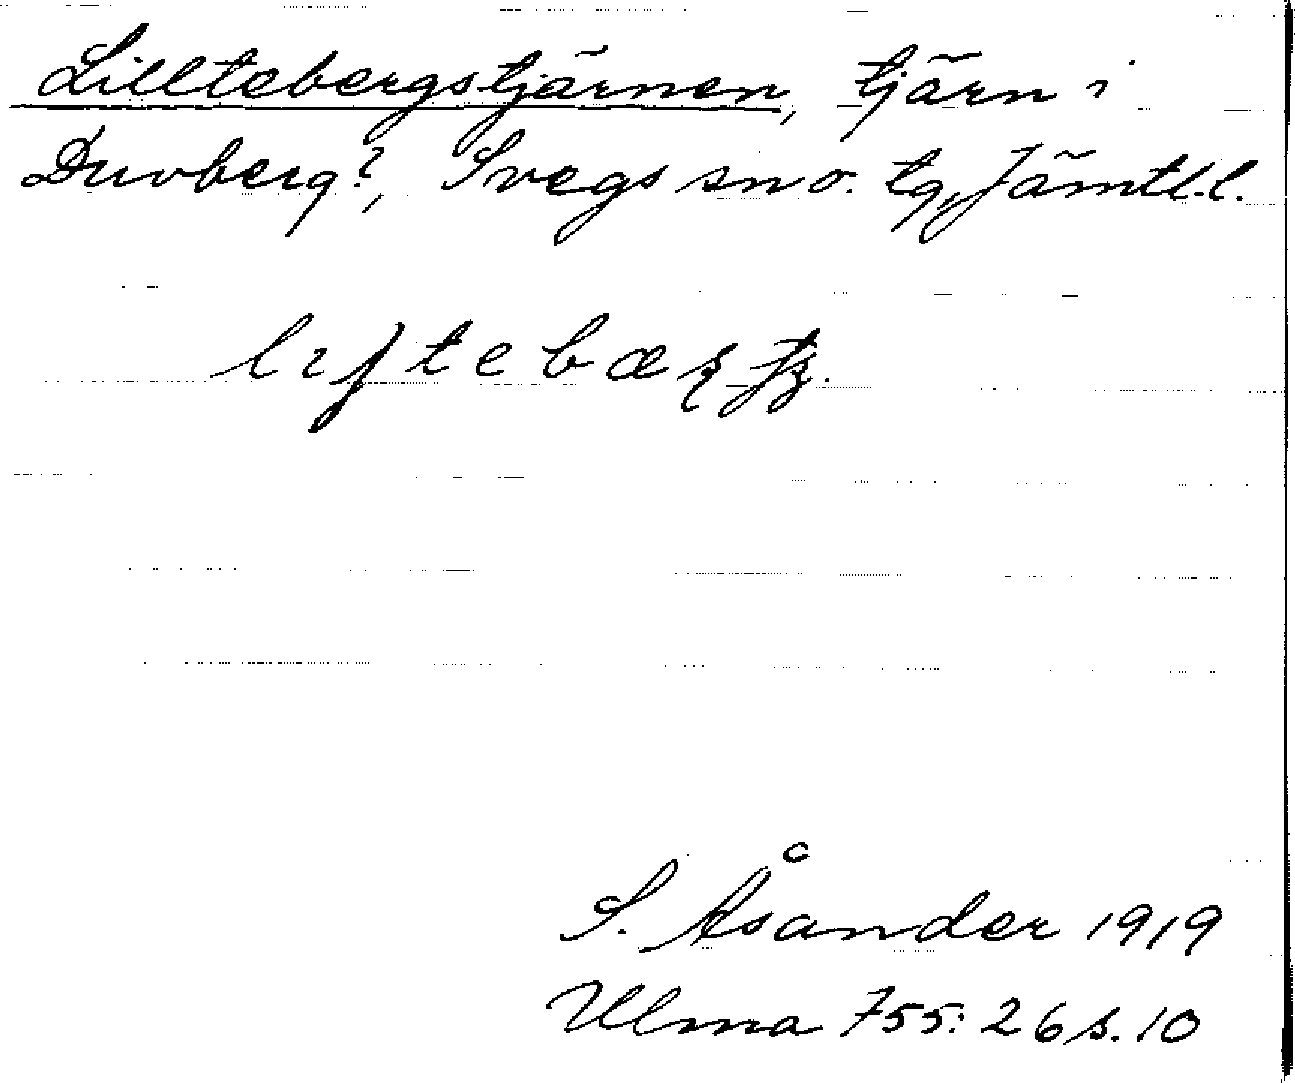 Lilltebergstjärnen, tjärn i
Duvberg?, Svegs sn o. tg, Jämtl. l.
S. Åsander 1919
Ulma 755: 26 s. 10